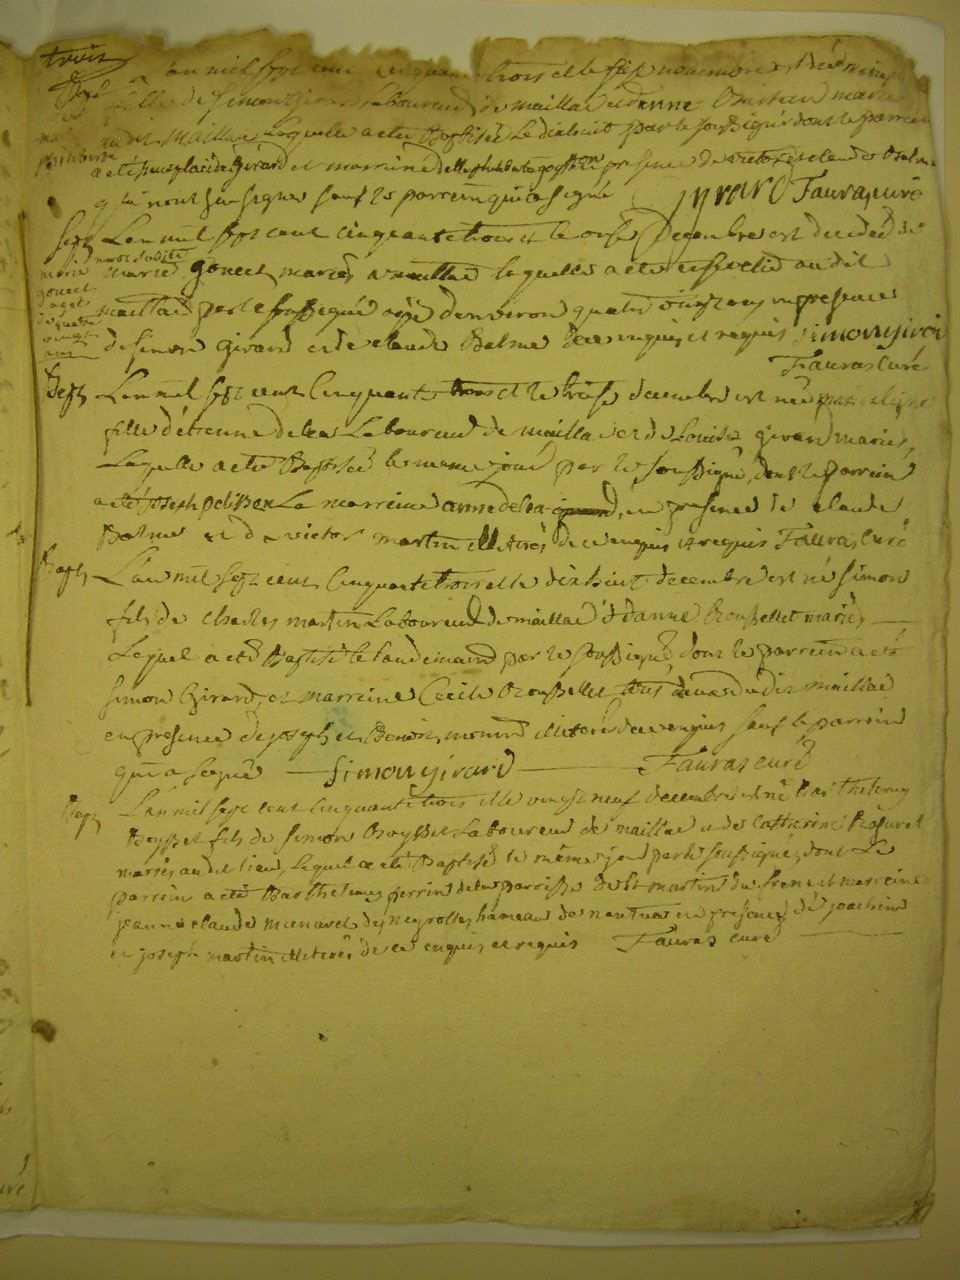 trois
Bap
L'an mil sept cent cinquante trois et le novembre est née
fille de Simon Girard Laboureur de maillac et danne marie
audit maillac laquelle a été Baptisée Le dixhuit par le soussigné dont le parrein
a été Girard et marreine en presence de victor et claude Balme
qui n'ont su signer sauf le parrein qui a signé Girard Fauras curé
Sept L'an mil sept cent cinquante trois et le onze Decembre est decedée
marie gonect agée de quatre vingt ans
marie gonect mariée a maillac laquelle a été ensevelie au dit
maillac par le soussigné agée d'environ quatre vingt ans en presence
de Simon Girard et de claude Balme de ce enquis et requis Simon girard
Fauras Curé
Bapt L'an mil sept cent Cinquante trois et le treise decembre est née
fille d'étienne delea Laboureur de maillac et de Louise Girard mariés
Laquelle a été Baptisée le meme jour par le soussigné, dont le parrein
a été joseph pelisson La marreine anne delea en presence de claude
Balme et de victor martin illiterés de ce enquis et requis Fauras Curé
Bapt L'an mil sept cent Cinquante trois et le dix huit decembre est né simon
fils de charles martin Laboureur de maillac & danne Rousselet mariés
Lequel a été Baptisé le landemaind par le soussigné, dont le parrein a été
simon Girard, et marreine Cecile Rousselet tous deux dudit maillac
en presence de joseph et Benoit monird illiterés de ce enquis sauf le parrein
qui a signé Simon girard Fauras curé
Bapt L'an mil sept cent cinquante trois et le vingt neuf decembre est né Barthelemy
Roysset fils de simon Roysset Laboureur de maillac et de Catherine
mariés au dit lieu, lequel a été Baptisé le même jour par le soussigné, dont Le
parrein a été Barthelemy perrin de la parroisse de St martin du frene et marreine
jeanne claude menard des neyrolles hameau de nantua en presence de joachim
et joseph martin illiterés de ce enquis et requis Fauras curé